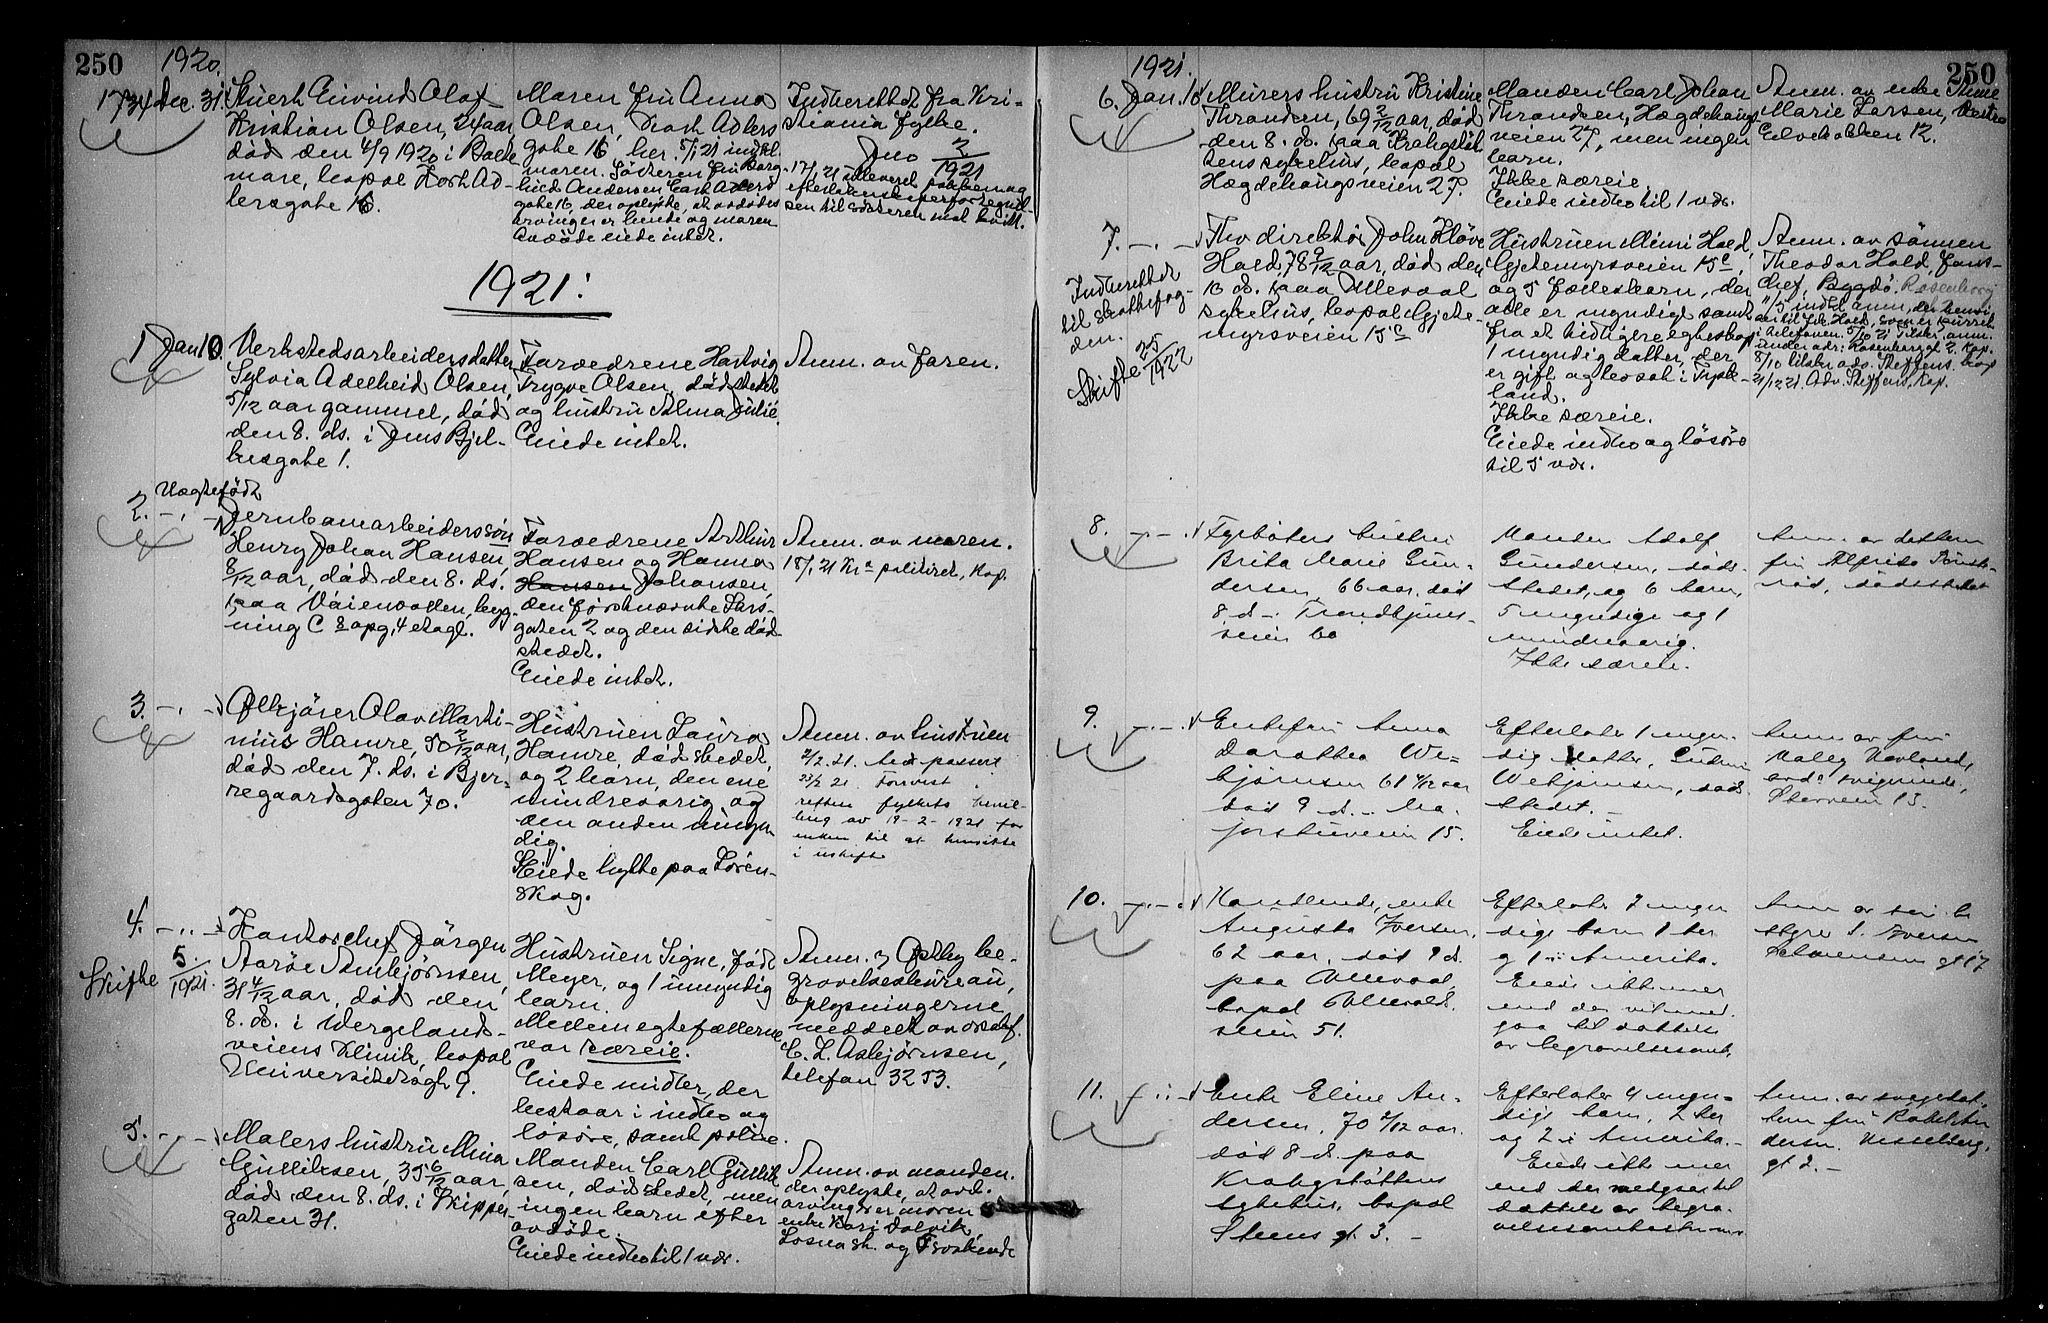 250
1920.
1734 Dec. 31.
Stuert Eivind Olaf
Kristian Olsen, 24 aar,
død den 4/9 1920 i
bopæl Kort Ad-
lersgate 16.
Moren fru Anna
Olsen, Kort Adlers
gate 16, her. 5/1 21 indkl.
moren. Søsteren fru Borg-
hild Andersen Cort Adlers
gate 16, der oplyste, at avdødes
arvinger er hende og moren
Avdøde eiede intet.
Indberettet fra Kri-
stiania fylke.
Jno 2/1921
17/1 21 utleveret
til søsteren mot kvitt.
1921:
1 Jan 10.
Verkstedsarbeidersdatter
Sylvia Adelheid Olsen,
5/12 aar gammel, død
den 8. ds. i Jens Bjel-
kesgate 1.
Forældrene Hartvig
Trygve Olsen, dødsstedet
og hustru Alma Julie.
Eiede intet.
Anm. av faren.
Uægtefødt
2. -.-
Jernbanearbeiderssøn
Henry Johan Hansen,
8/12 aar, død den 8. ds.
paa Vaienvolden, byg-
ning C 8 opg, 4 etage.
Forældrene Arthur
Hansen og Hanna
Hansen Johansen,
den førstnævnte Lars-
gaten 2 og den sidste død-
stedet.
Eiede intet.
Anm. av moren.
18/1 21 Kra politiet, Kop.
3. -.-
Ølkjører Olav Marti-
nius Hamre, 50 2/12 aar,
død den 7. ds. i Bjer-
regaardsgaten 70.
Hustruen Laura
Hamre, dødsstedet,
og 2 barn, den ene
mindreaarig og
den anden umyn-
dig.
Eiede hytte paa Løren-
skog.
Anm. av hustruen
2/2 21.
23/2 21.
fylkets bevil-
ling av 19-2-1921 for
enken til at hensitte
i uskifte
4. -..-
Skifte 5/1921.
Kontorchef Jørgen
Aarøe Asbjørnsen,
31 4/12 aar, død den
8. ds. i Wergelands-
veiens Klinik, bopæl
Universitetsgt 9.
Hustruen Signe, født
Meyer, og 1 umyndig
barn.
Mellem egtefællerne
var særeie.
Eiede midler, der
bestaar i indbo og
løsøre, samt polise.
Anm. av Opkby be-
gravelsesbureau,
oplysningerne
meddelt av
C. L. Asbjørnsen,
telefon 3253.
5. -.-
Malers hustru Mina
Gulliksen, 35 6/12 aar,
død den 8. ds. i Skipper-
gaten 31.
Manden Carl Gullik-
sen, dødsstedet, men
ingen barn efter
avdøde.
Eiede indbo til 1 vdr.
Anm. av manden.
der oplyste, at avd.
arvinger er moren
enke Kari Dalvik,
Losna st. og søskende
1921.
250
6. Jan. 10
Murers hustru Kristine
Thrandsen, 69 2/12 aar, død
den 8. ds. paa Krohgstøt-
tens sykehus, bopæl
Hægdehaugsveien 27.
Manden Carl Johan
Thrandsen, Hægdehaugs
veien 27, men ingen
barn.
Ikke særeie.
Eiede indbo til 1 vdr.
Anm. av enke Anne
Marie Larsen, Vestre
Elvebakken 12.
7. -.-
Indberettet
til skattefog-
den.
Skifte 25/1922
Fhv direktør John Kløve
Hald, 78 9/12 aar, død den
10 ds. paa Ullevaal
sykehus, bopæl Gjete-
myrsveien 15c
Hustruen Mimi Hald,
Gjetemyrsveien 15c,
og 5 fællesbarn, der
alle er myndige samt
fra et tidligere egteskap
1 myndig datter, der
er gift og bosat i Tysk-
land.
Ikke særeie.
Eiede indbo og løsøre
til 5 vdr.
Anm. av sønnen
Theodor Hald, fans-
chef, Bygdø, Rosenborg
under adr: Rosenborg gt 2. Kop.
8/10 tilskr. adv. Steffens. Kop
21/12 21. Adv. Steffens, Kop.
8. -.-
Fyrbøters hustru
Brita Marie Gun-
dersen, 66 aar, død
8. d. Trondhjems-
veien 60
Manden Adolf
Gundersen, døds-
stedet, og 6 barn,
5 myndige og 1
mindreaarig.
Ikke særeie.
Anm. av datteren
fru Alfrida
dødsstedet
9. -.-
Enkefru Anna
Dorothea We-
bjørnsen 61 4/12 aar
død 9 d. Ma-
jorstuveien 15.
Efterlater 1 myn-
dig datter, Gudrun
Webjørnsen, døds-
stedet. -
Eiede intet.
Anm. av fru
Valeg Havland,
avd. svigerinde,
13.
10. -.-
Handlende, enke
Augusta Iversen,
62 aar, død 9 d.
paa Ullevaal,
bopæl Ullevaals-
veien 51.
Efterlater 2 myn
dige barn 1 her
og 1 i Amerika.
Eiede ikke mer
end der vil med-
gaa til dækkelse
av begravelsesomk.
Anm. av
I. Iversen
gt 17
11. -..-
Enke Eline An-
dersen, 70 4/12 aar.
død 8 d. paa
Krohgstøttens
sykehus, bopæl
Steens gt. 3. -
Efterlater 4 myn-
dige barn, 2 her
og 2 i Amerika. -
Eiede ikke mer
end der medgaar til
dækkelse av begra-
velsesomkostninger
Anm. av svigerdat-
teren fru
Vesselberg,
gt 2. -